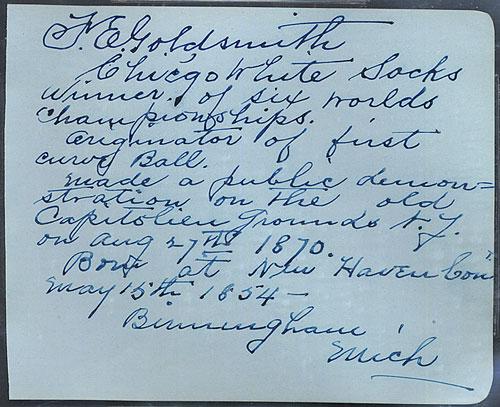 F. E. Goldsmith
Chicgo White Socks
Winner of six worlds
Championships.
originator of first
curve Ball.
made a public demon=
stration on the old
Capitolien Grounds N.Y.
on aug 27th 1870.
Born at New Haven Con"
may 15th 1854 –
Birmingham
Mich